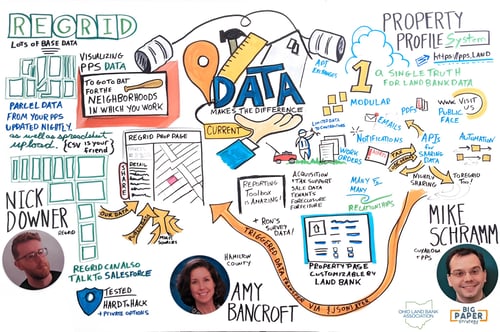 REGRID
LOTS OF BASE DATA
VISUALIZING
PPS DATA
TO GO TO BAT
FOR THE
NEIGHBORHOODS
IN WHICH YOU WORK
PARCEL DATA
FROM YOUR PPS
UPDATED NIGHTLY.
as well as spreadsheet
upload.
{CSV is your
Friend}
REGRID PROP PAGE
SHARE
DETAIL
NICK
DOWNER
REGRID
OUR DATA
MANY
SOURCES
REGRID CAN ALSO
TALK TO SALESFORCE
TESTED
HARD TO HACK
+ PRIVATE OPTIONS
DATA
MAKES THE DIFFERENCE
CURRENT
REPORTING
Toolbox
IS AMAZING!
ACQUISITION
+ TAX SUPPORT
SALE DATA
TENANTS
FORECLOSURE
FORFEITURE
+ RON'S
SURVEY DATA!
HAMILTON
COUNTY
AMY
BANCROFT
TRIGGERED DATA TRANSFER VIA
PROPERTY PAGE
CUSTOMIZABLE BY
LAND BANK
API
EXCHANGES
LIMITED DATA
TO CONTRACTORS
WORK
ORDERS
MANY
MANY
RELATIONSHIPS
PROPERTY
PROFILE System
https://pps.LAND
1
A SINGLE TRUTH
FOR LAND BANK DATA
MODULAR
PDFS
EMAILS
NOTIFICATIONS
www VISIT US
PUBLIC
FACE
APIs
FOR
SHARING
DATA
AUTOMATION
NIGHTLY
SHARING
TO REGRID
Too!
MIKE
SCHRAMM
CUYAHOGA
+ PPS
OHIO LAND BANK
ASSOCIATION
BIG
PAPER
strategy